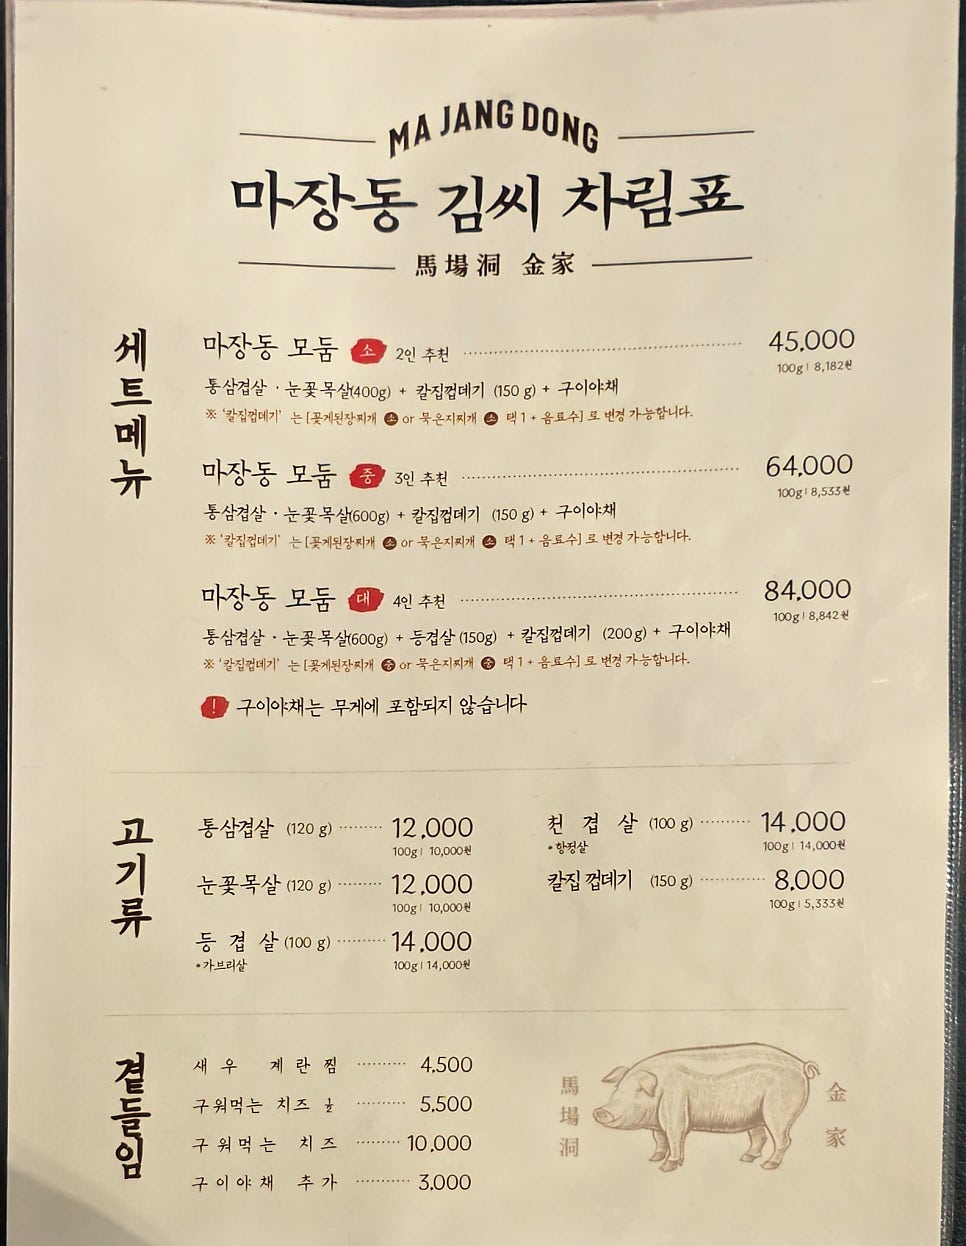 MA JANG DONG
마장동 김씨 차림표
馬場洞 金家
세트메뉴
마장동 모둠 소 2인 추천 45,000
100g | 8,182원
통삼겹살 · 눈꽃목살(400g) + 칼집껍데기 (150 g) + 구이야채
※ '칼집껍데기' 는 [꽃게된장찌개 소 or 묵은지찌개 소 택 1 + 음료수] 로 변경 가능합니다.
마장동 모둠 중 3인 추천 64,000
100g | 8,533원
통삼겹살 · 눈꽃목살(600g) + 칼집껍데기 (150 g) + 구이야채
※ '칼집껍데기' 는 [꽃게된장찌개 소 or 묵은지찌개 소 택 1 + 음료수] 로 변경 가능합니다.
마장동 모둠 대 4인 추천 84,000
100g | 8,842원
통삼겹살 · 눈꽃목살(600g) + 등겹살 (150g) + 칼집껍데기 (200 g) + 구이야채
※ '칼집껍데기' 는 [꽃게된장찌개 중 or 묵은지찌개 중 택 1 + 음료수] 로 변경 가능합니다.
! 구이야채는 무게에 포함되지 않습니다
고기류
통삼겹살 (120 g) 12,000
100g | 10,000원
눈꽃목살 (120 g) 12,000
100g | 10,000원
등겹살 (100 g) 14,000
*가브리살 100g | 14,000원
천겹살 (100 g) 14,000
*항정살 100g | 14,000원
칼집껍데기 (150 g) 8,000
100g | 5,333원
곁들임
새우 계란찜 4,500
구워먹는 치즈 ½ 5,500
구워먹는 치즈 10,000
구이야채 추가 3,000
馬場洞
金家